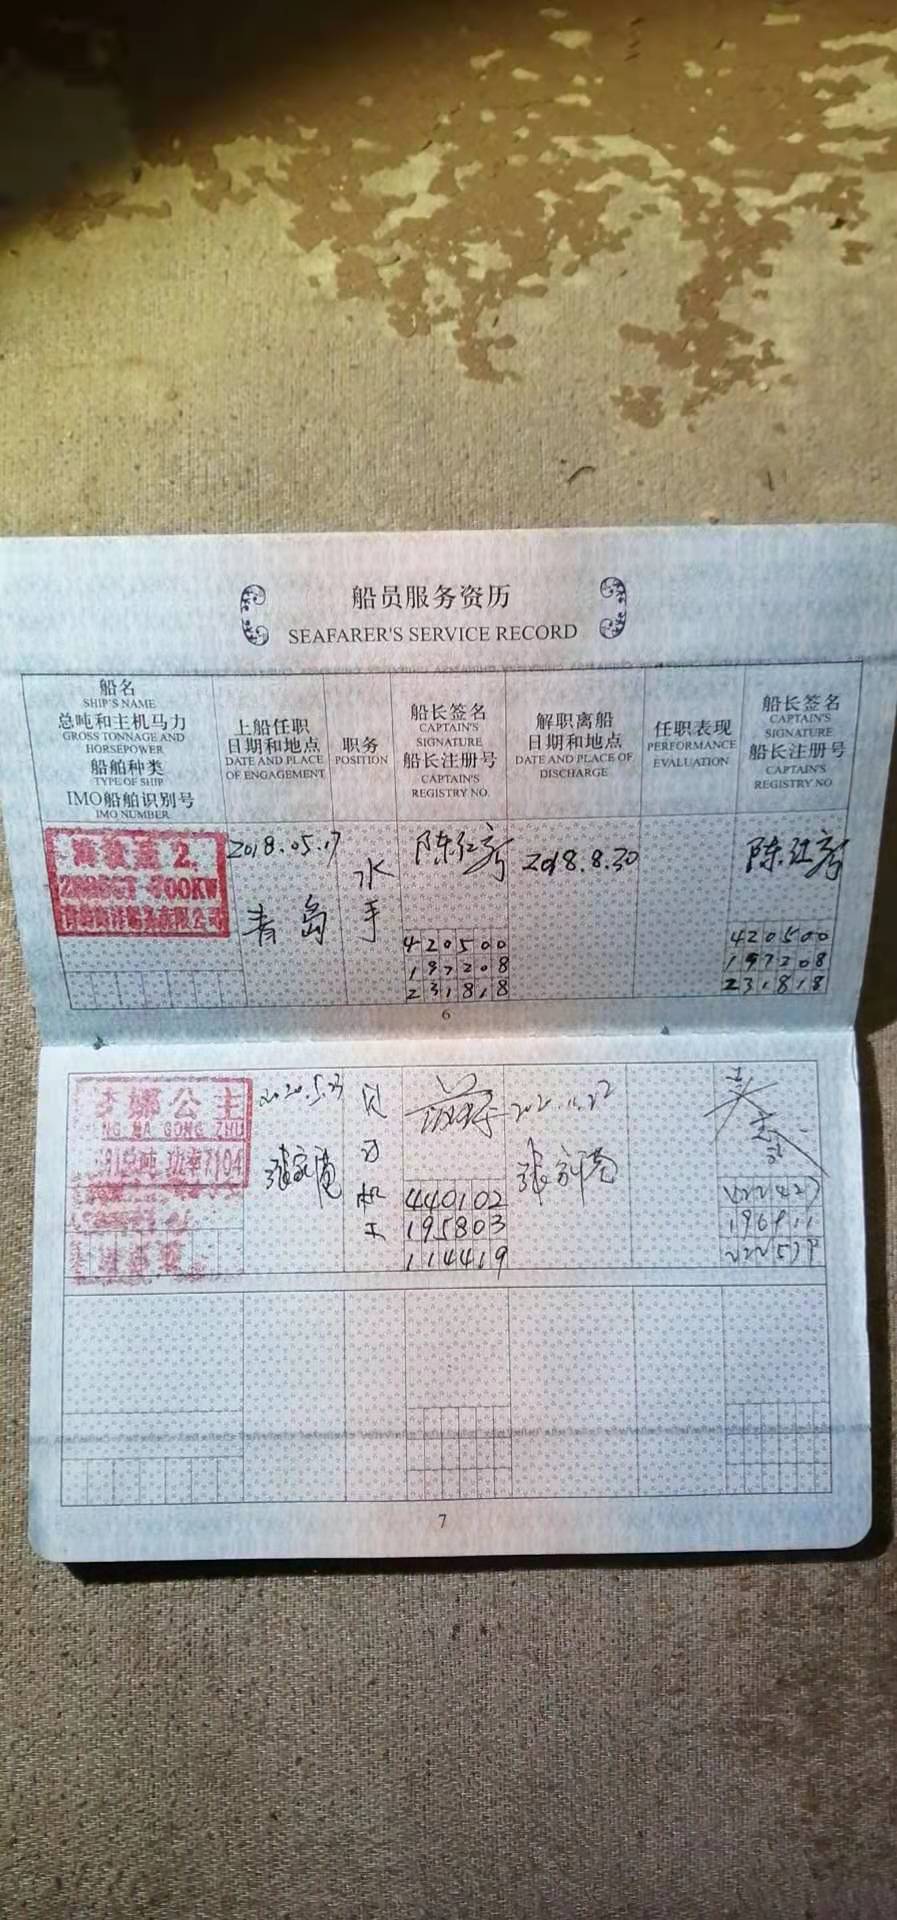 船员服务资历
SEAFARER'S SERVICE RECORD
船名
SHIP'S NAME
总吨和主机马力
GROSS TONNAGE AND
HORSEPOWER
船舶种类
TYPE OF SHIP
IMO船舶识别号
IMO NUMBER
上船任职
日期和地点
DATE AND PLACE
OF ENGAGEMENT
职务
POSITION
船长签名
CAPTAIN'S
SIGNATURE
船长注册号
CAPTAIN'S
REGISTRY NO.
解职离船
日期和地点
DATE AND PLACE OF
DISCHARGE
任职表现
PERFORMANCE
EVALUATION
船长签名
CAPTAIN'S
SIGNATURE
船长注册号
CAPTAIN'S
REGISTRY NO
2.
2018.05.17
青岛
水
手
陈红
420500
197208
231818
2018.8.30
陈红
420500
197208
231818
6
娜公主
NA GONG ZHU
功率7104
2020.5.23
张家港
机
工
440102
195803
114419
张家港
7